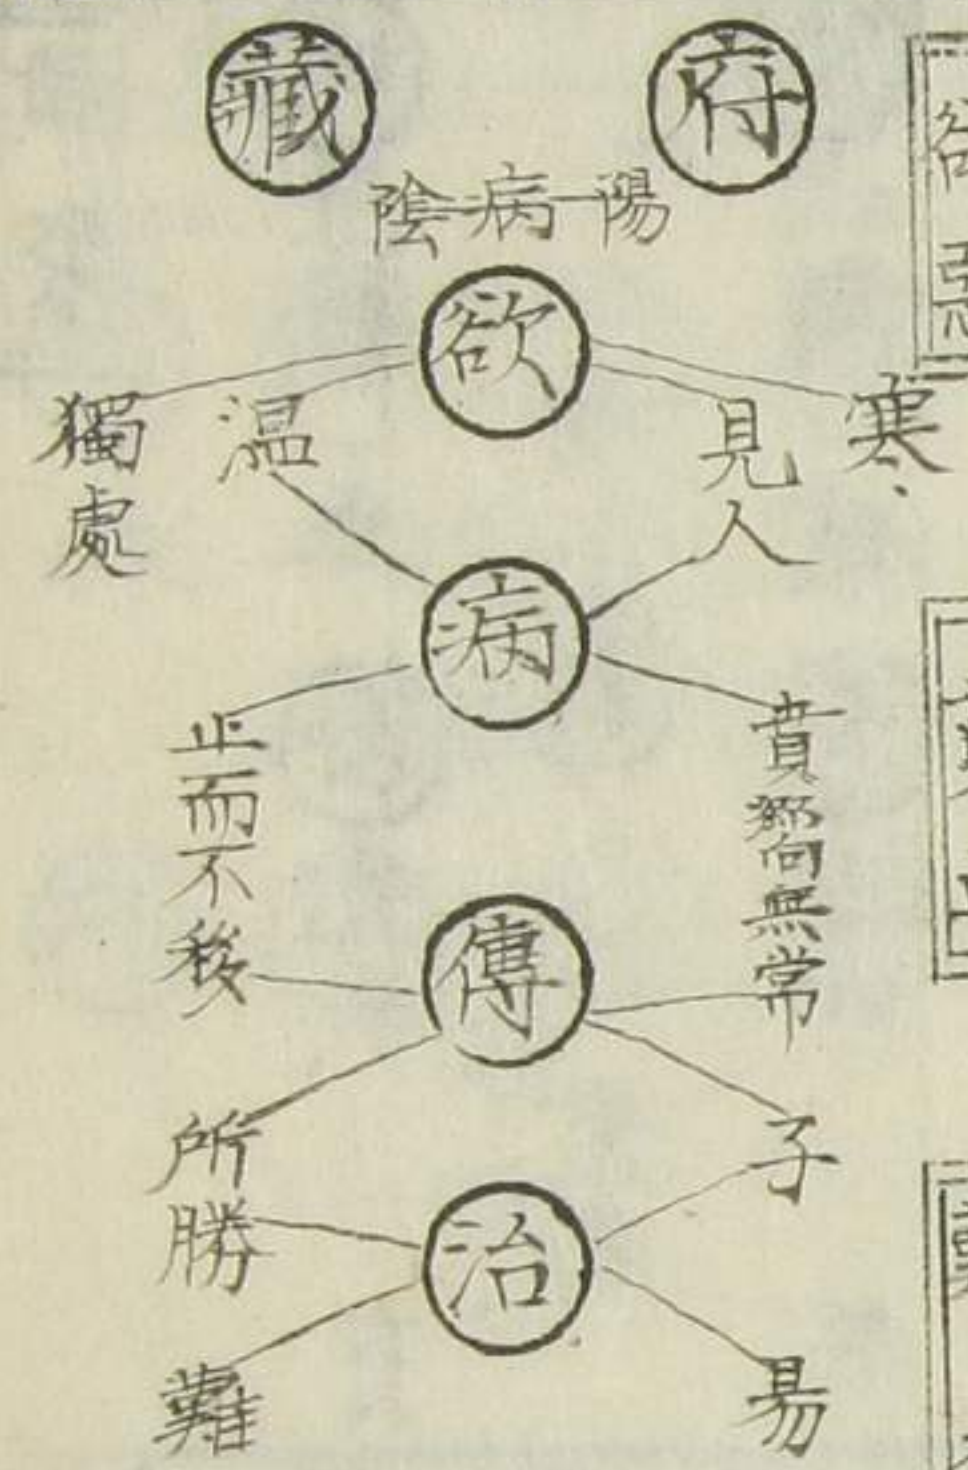 府
藏
陽病陰
欲
寒
見人
温
獨處
病
賁嚮無常
止而不移
傳
子
所勝
治
易
難